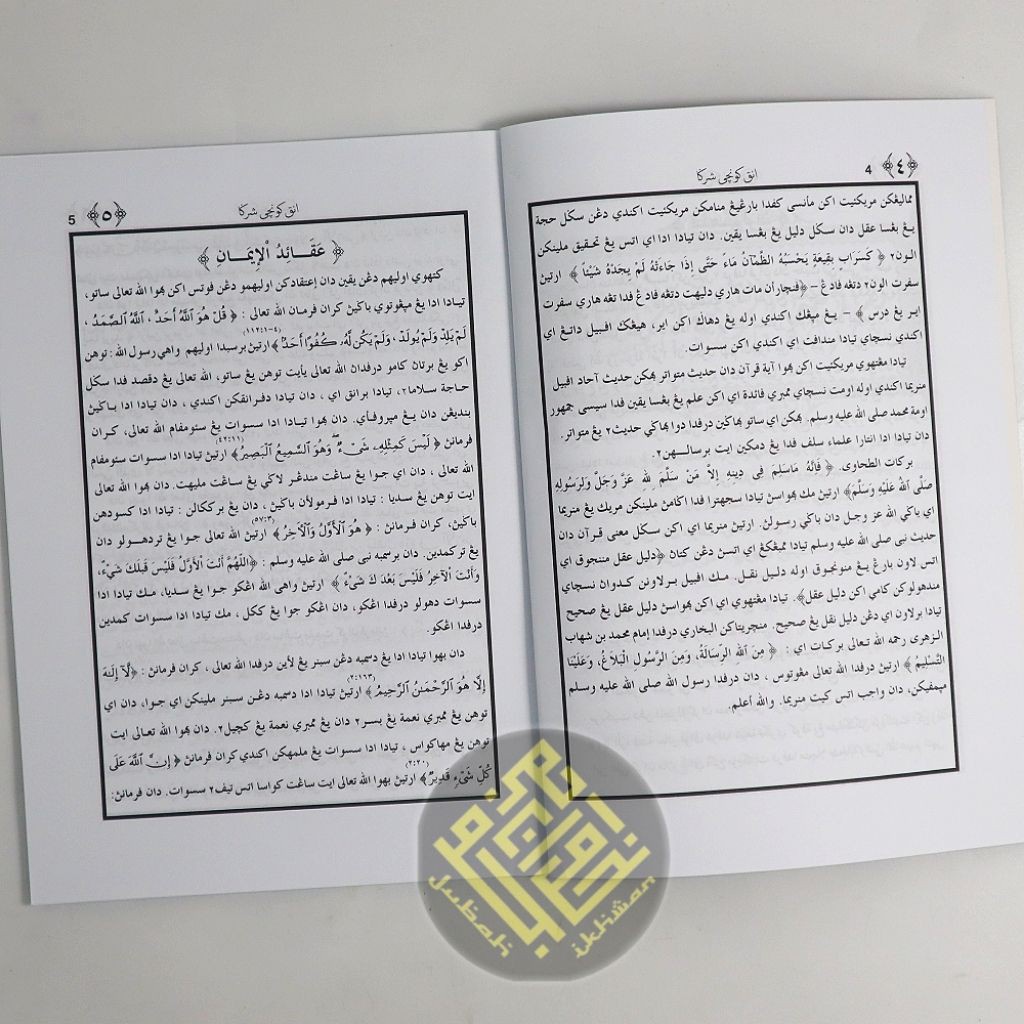 ﴿٤﴾ 4
انق كونچي شركا
ممالیڠکن مريكئيت اكن مأنسي كفدا بارڠيڠ منامكن مريكئيت اكندي دڠن سكل حجة
يڠ بڠسا عقل دان سكل دليل يڠ بڠسا يقين. دان تيادا ادا اي اتس يڠ تحقيق ملينكن
الون٢ ﴿ كَسَرَابٍ بِقِيعَةٍ يَحْسَبُهُ الظَّمْآنُ مَاءً حَتَّى إِذَا جَاءَهُ لَمْ يَجِدْهُ شَيْئاً ﴾ ارتيڽ
سفرت الون٢ دتڠه ڤادڠ – ﴿ڤنچاران مات هاري دليهت دتڠه ڤادڠ ڤدا تڠه هاري سفرت
اير يڠ درس﴾ – يڠ مڠك اكندي اوله يڠ دهاݢ اكن اير، هيڠݢ اڤبيل داتڠ اي
اكندي نسچاي تيادا مندافت اي اكندي اكن سسوات.
تيادا مڠتهوي مريكئيت اكن بهوا آية قرآن دان حديث متواتر بهكن حديث آحاد اڤبيل
منريما اكندي اوله اومت نسچاي ممبري فائدة اي اكن علم يڠ بڠسا يقين ڤدا سيسي جمهور
اومة محمد صلى الله عليه وسلم. بهكن اي ساتو بهاڬين درڤدا دوا بهاڬي حديث٢ يڠ متواتر.
دان تيادا ادا انتارا علماء سلف ڤدا يڠ دمكين ايت برسالهن٢.
بركات الطحاوى. ﴿ فَإِنَّهُ مَاسَلِمَ فِى دِينِهِ إِلَّا مَنْ سَلَّمَ لِلهِ عَزَّ وَجَلَّ وَلِرَسُولِهِ
صَلَّى اللهُ عَلَيْهِ وَسَلَّمَ﴾ ارتيڽ مك بهواسڽ تيادا سجهترا ڤدا اݢامڽ ملينكن مريك يڠ منريما
اي باݢي الله عز وجل دان باݢي رسولڽ. ارتيڽ منريما اي اكن سكل معنى قرآن دان
حديث نبي صلى الله عليه وسلم تيادا ممبڠكڠ اي اتسڽ دڠن كتاڽ ﴿دليل عقل مننجوق اي
اتس لاون بارڠ يڠ منونجوق اوله دليل نقل. مك اڤبيل برلاونن كدوان نسچاي
مندهولوكن كامي اكن دليل عقل﴾. تيادا مڠتهوي اي اكن بهواسڽ دليل عقل يڠ صحيح
تيادا برلاون اي دڠن دليل نقل يڠ صحيح. منچريتاكن البخاري درڤدا إمام محمد بن شهاب
الزهرى رحمه الله تعالى بركات اي : ﴿ مِنَ اللهِ الرِّسَالَةُ، وَمِنَ الرَّسُولِ الْبَلَاغُ، وَعَلَيْنَا
التَّسْلِيمُ ﴾ ارتيڽ درڤدا الله تعالى مڠوتوس ، دان درڤدا رسول الله صلى الله عليه وسلم
مڽمڤيكن، دان واجب اتس كيت منريما. والله أعلم.
﴿٥﴾ 5
انق كونچي شركا
﴿ عَقَـائِدُ الْإِيمَـانِ ﴾
كتهوي اوليهم دڠن يقين دان إعتقادكن اوليهمو دڠن ڤوتس اكن بهوا الله تعالى ساتو،
تيادا ادا يڠ مڠوتوي باݢيڽ كران فرمان الله تعالى : ﴿ قُلْ هُوَ اللَّهُ أَحَدٌ ، اللَّهُ الصَّمَدُ ،
لَمْ يَلِدْ وَلَمْ يُولَدْ ، وَلَمْ يَكُن لَّهُ كُفُوًا أَحَدٌ ﴾(١١٢:١-٤) ارتيڽ برسبدا اوليهم واهي رسول الله : توهن
اكو يڠ برتان كامو درڤدان الله تعالى يأيت توهن يڠ ساتو، الله تعالى يڠ دقصد ڤدا سكل
حاجة سلاما٢، تيادا برانق اي ، دان تيادا دڤرانقكن اكندي ، دان تيادا ادا باݢيڽ
بنديڠن دان يڠ مڽروڤاي. دان بهوا تيادا ادا سسوات يڠ سئومڤام الله تعالى، كران
فرمانڽ ﴿ لَيْسَ كَمِثْلِهِ شَيْءٌ وَهُوَ السَّمِيعُ الْبَصِيرُ ﴾(٤٢:١١) ارتيڽ تيادا ادا سسوات سئومڤام
الله تعالى ، دان اي جوا يڠ ساڠت مندڠر لاݢي يڠ ساڠت مليهت. دان بهوا الله تعالى
ايت توهن يڠ سديا : تيادا ادا ڤرمولأن باݢيڽ ، دان يڠ برككالن : تيادا ادا كسودهن
باݢيڽ، كران فرمانڽ : ﴿ هُوَ الْأَوَّلُ وَالْآخِرُ ﴾(٥٧:٣) ارتيڽ الله تعالى جوا يڠ تردهولو دان
يڠ تركمدين. دان برسبده نبي صلى الله عليه وسلم : ﴿اللَّهُمَّ أَنْتَ الْأَوَّلُ فَلَيْسَ قَبْلَكَ شَيْءٌ،
وَأَنْتَ الْآخِرُ فَلَيْسَ بَعْدَكَ شَيْءٌ ﴾ ارتيڽ واهى الله اڠكو جوا يڠ سديا، مك تيادا ادا
سسوات دهولو درڤدا اڠكو، دان اڠكو جوا يڠ ككل ، مك تيادا ادا سسوات كمدين
درڤدا اڠكو.
دان بهوا تيادا ادا يڠ دسمبه دڠن سبنر يڠ لأين درڤدا الله تعالى ، كران فرمانڽ : ﴿لَآ إِلَـٰهَ
إِلَّا هُوَ الرَّحْمَـٰنُ الرَّحِيمُ ﴾(٢:١٦٣) ارتيڽ تيادا ادا دسمبه دڠن سبنر ملينكن اي جوا، دان اي
توهن يڠ ممبري نعمة يڠ بسر٢ دان يڠ ممبري نعمة يڠ كچيل٢. دان بهوا الله تعالى ايت
توهن يڠ مهاكواس ، تيادا ادا سسوات يڠ ملمهكن اكندي كران فرمانڽ ﴿ إِنَّ اللَّهَ عَلَى
كُلِّ شَيْءٍ قَدِيرٌ ﴾(٢:٢٠) ارتيڽ بهوا الله تعالى ايت ساڠت كواسا اتس تيڤ٢ سسوات. دان فرمانڽ:
Jubah ikhwan